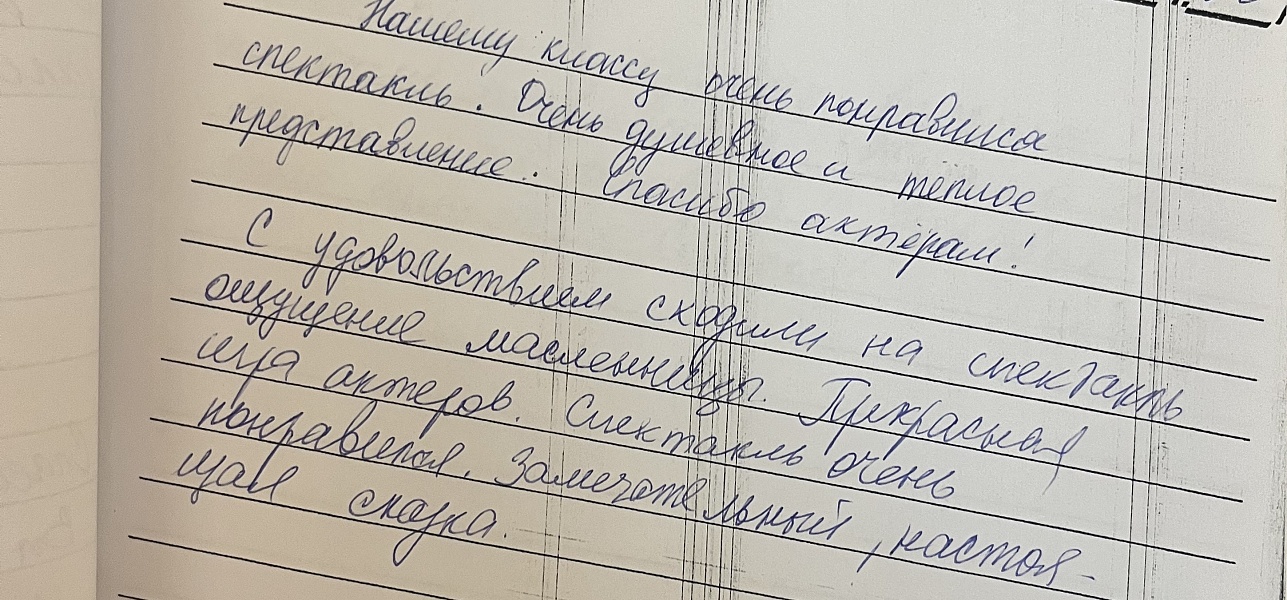 Нашему классу очень понравился
спектакль. Очень душевное и тёплое
представление. Спасибо актёрам!
С удовольствием сходили на спектакль
ощущение масленницы. Прекрасная
игра актеров. Спектакль очень
понравился. Замечательный, настоя-
щая сказка.